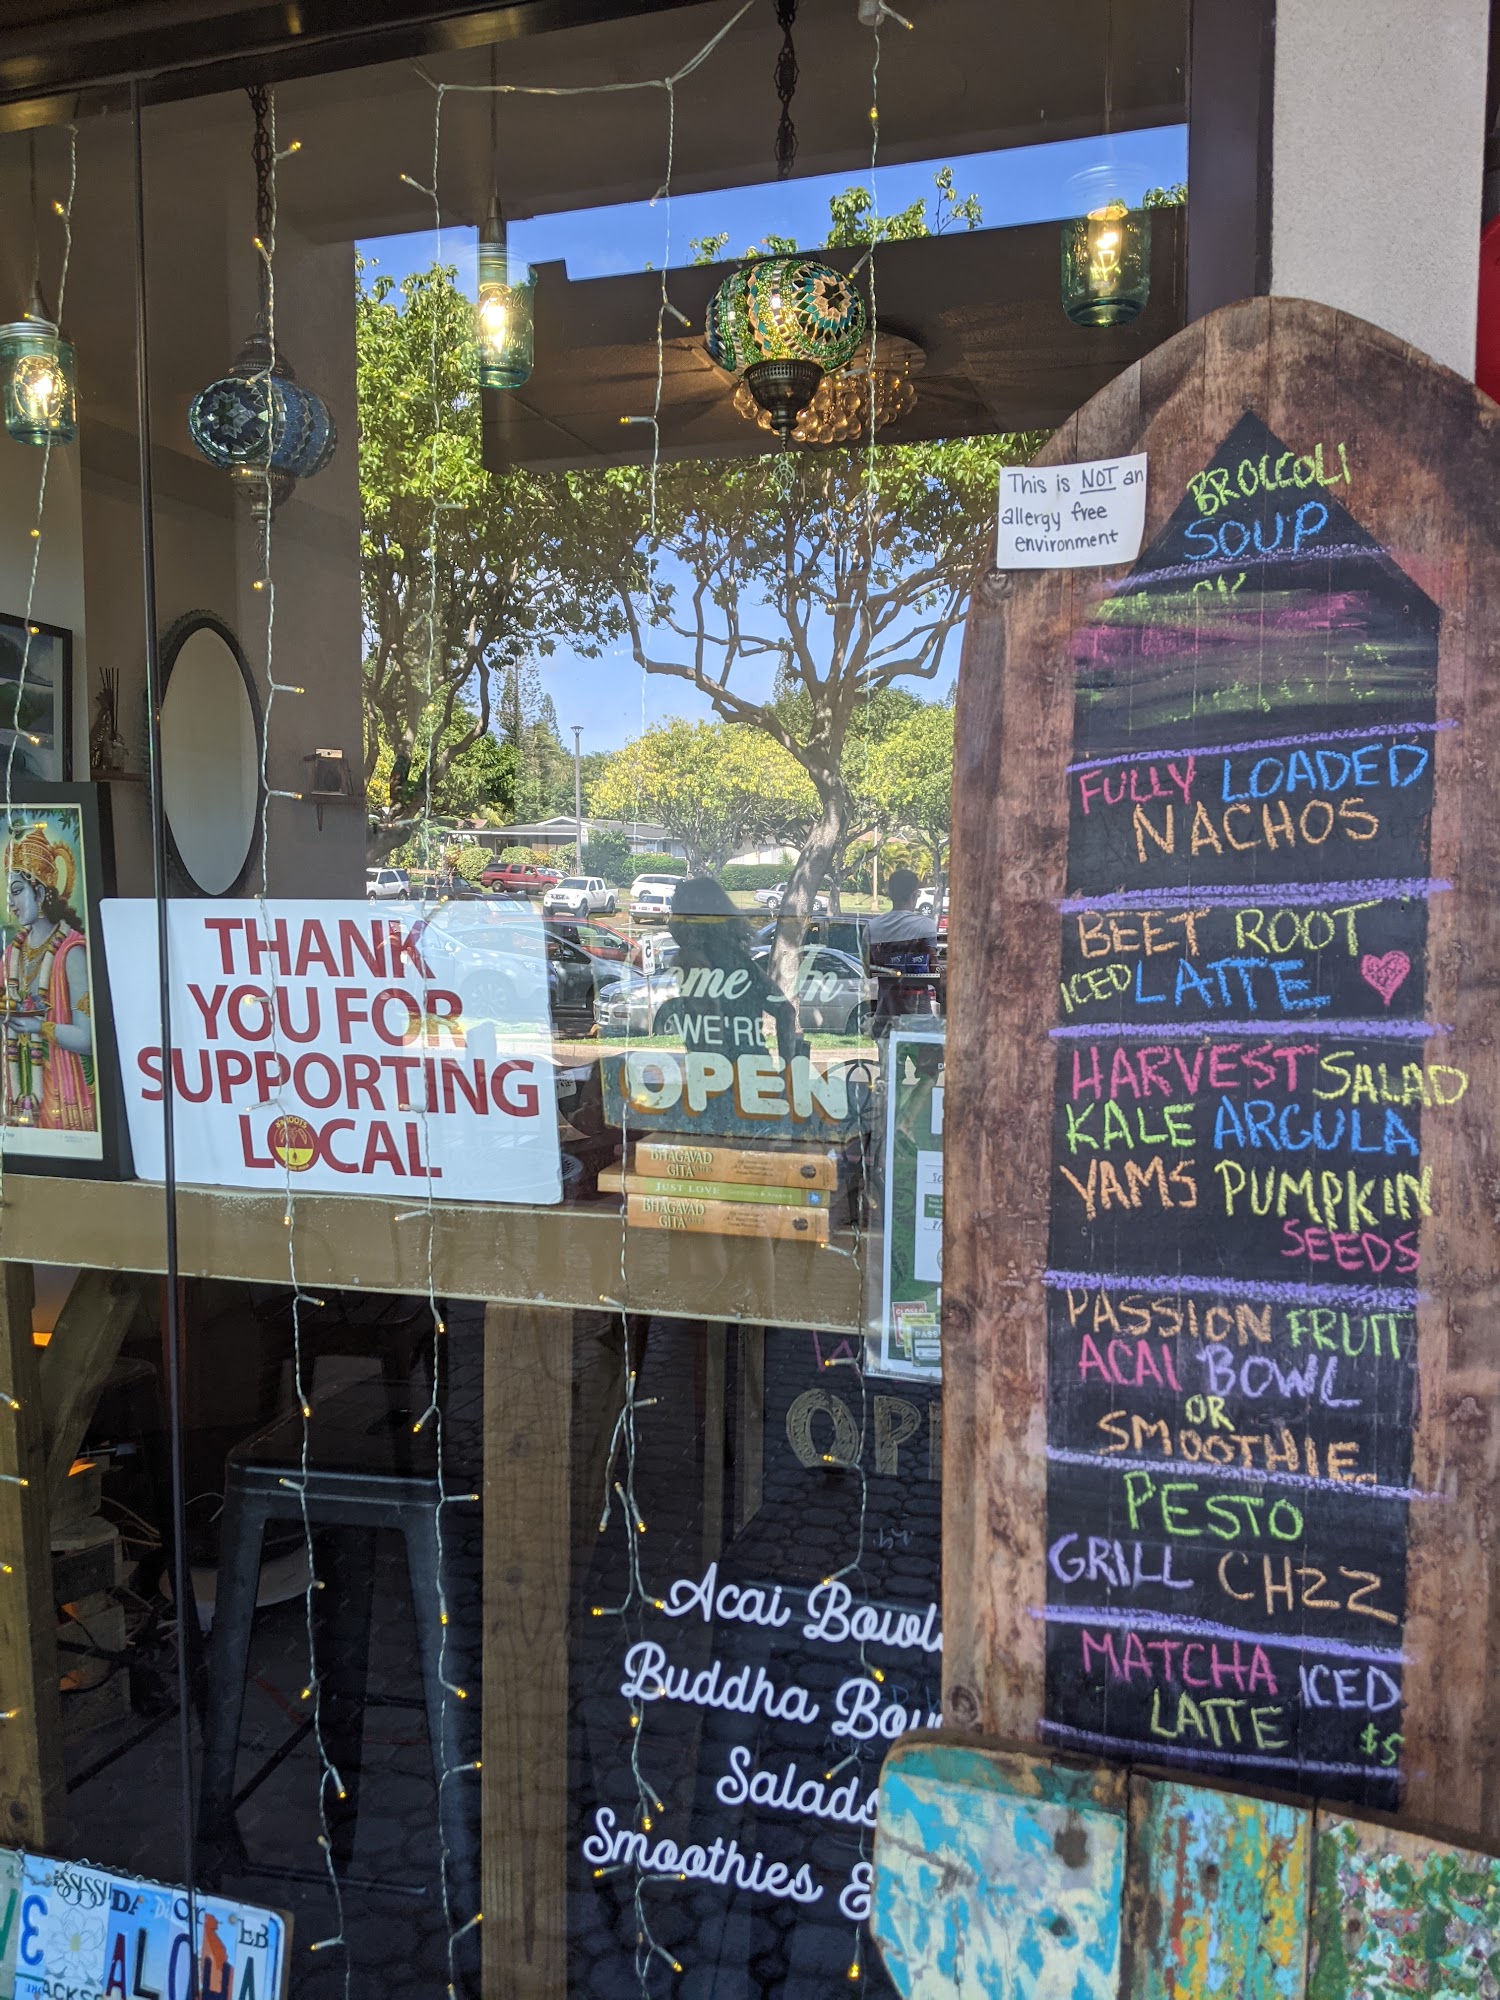 This is NOT an
allergy free
environment
BROCCOLI
SOUP
FULLY LOADED
NACHOS
BEET ROOT
ICED LATTE
HARVEST SALAD
KALE ARGULA
YAMS PUMPKIN
SEEDS
PASSION FRUIT
ACAI BOWL
OR
SMOOTHIE
PESTO
GRILL CHZZ
MATCHA ICED
LATTE $5
THANK
YOU FOR
SUPPORTING
LOCAL
Come In
WE'RE
OPEN
BHAGAVAD
GITA
JUST LOVE
BHAGAVAD
GITA
Acai Bowls
Buddha
Salads
Smoothies &
ALOHA